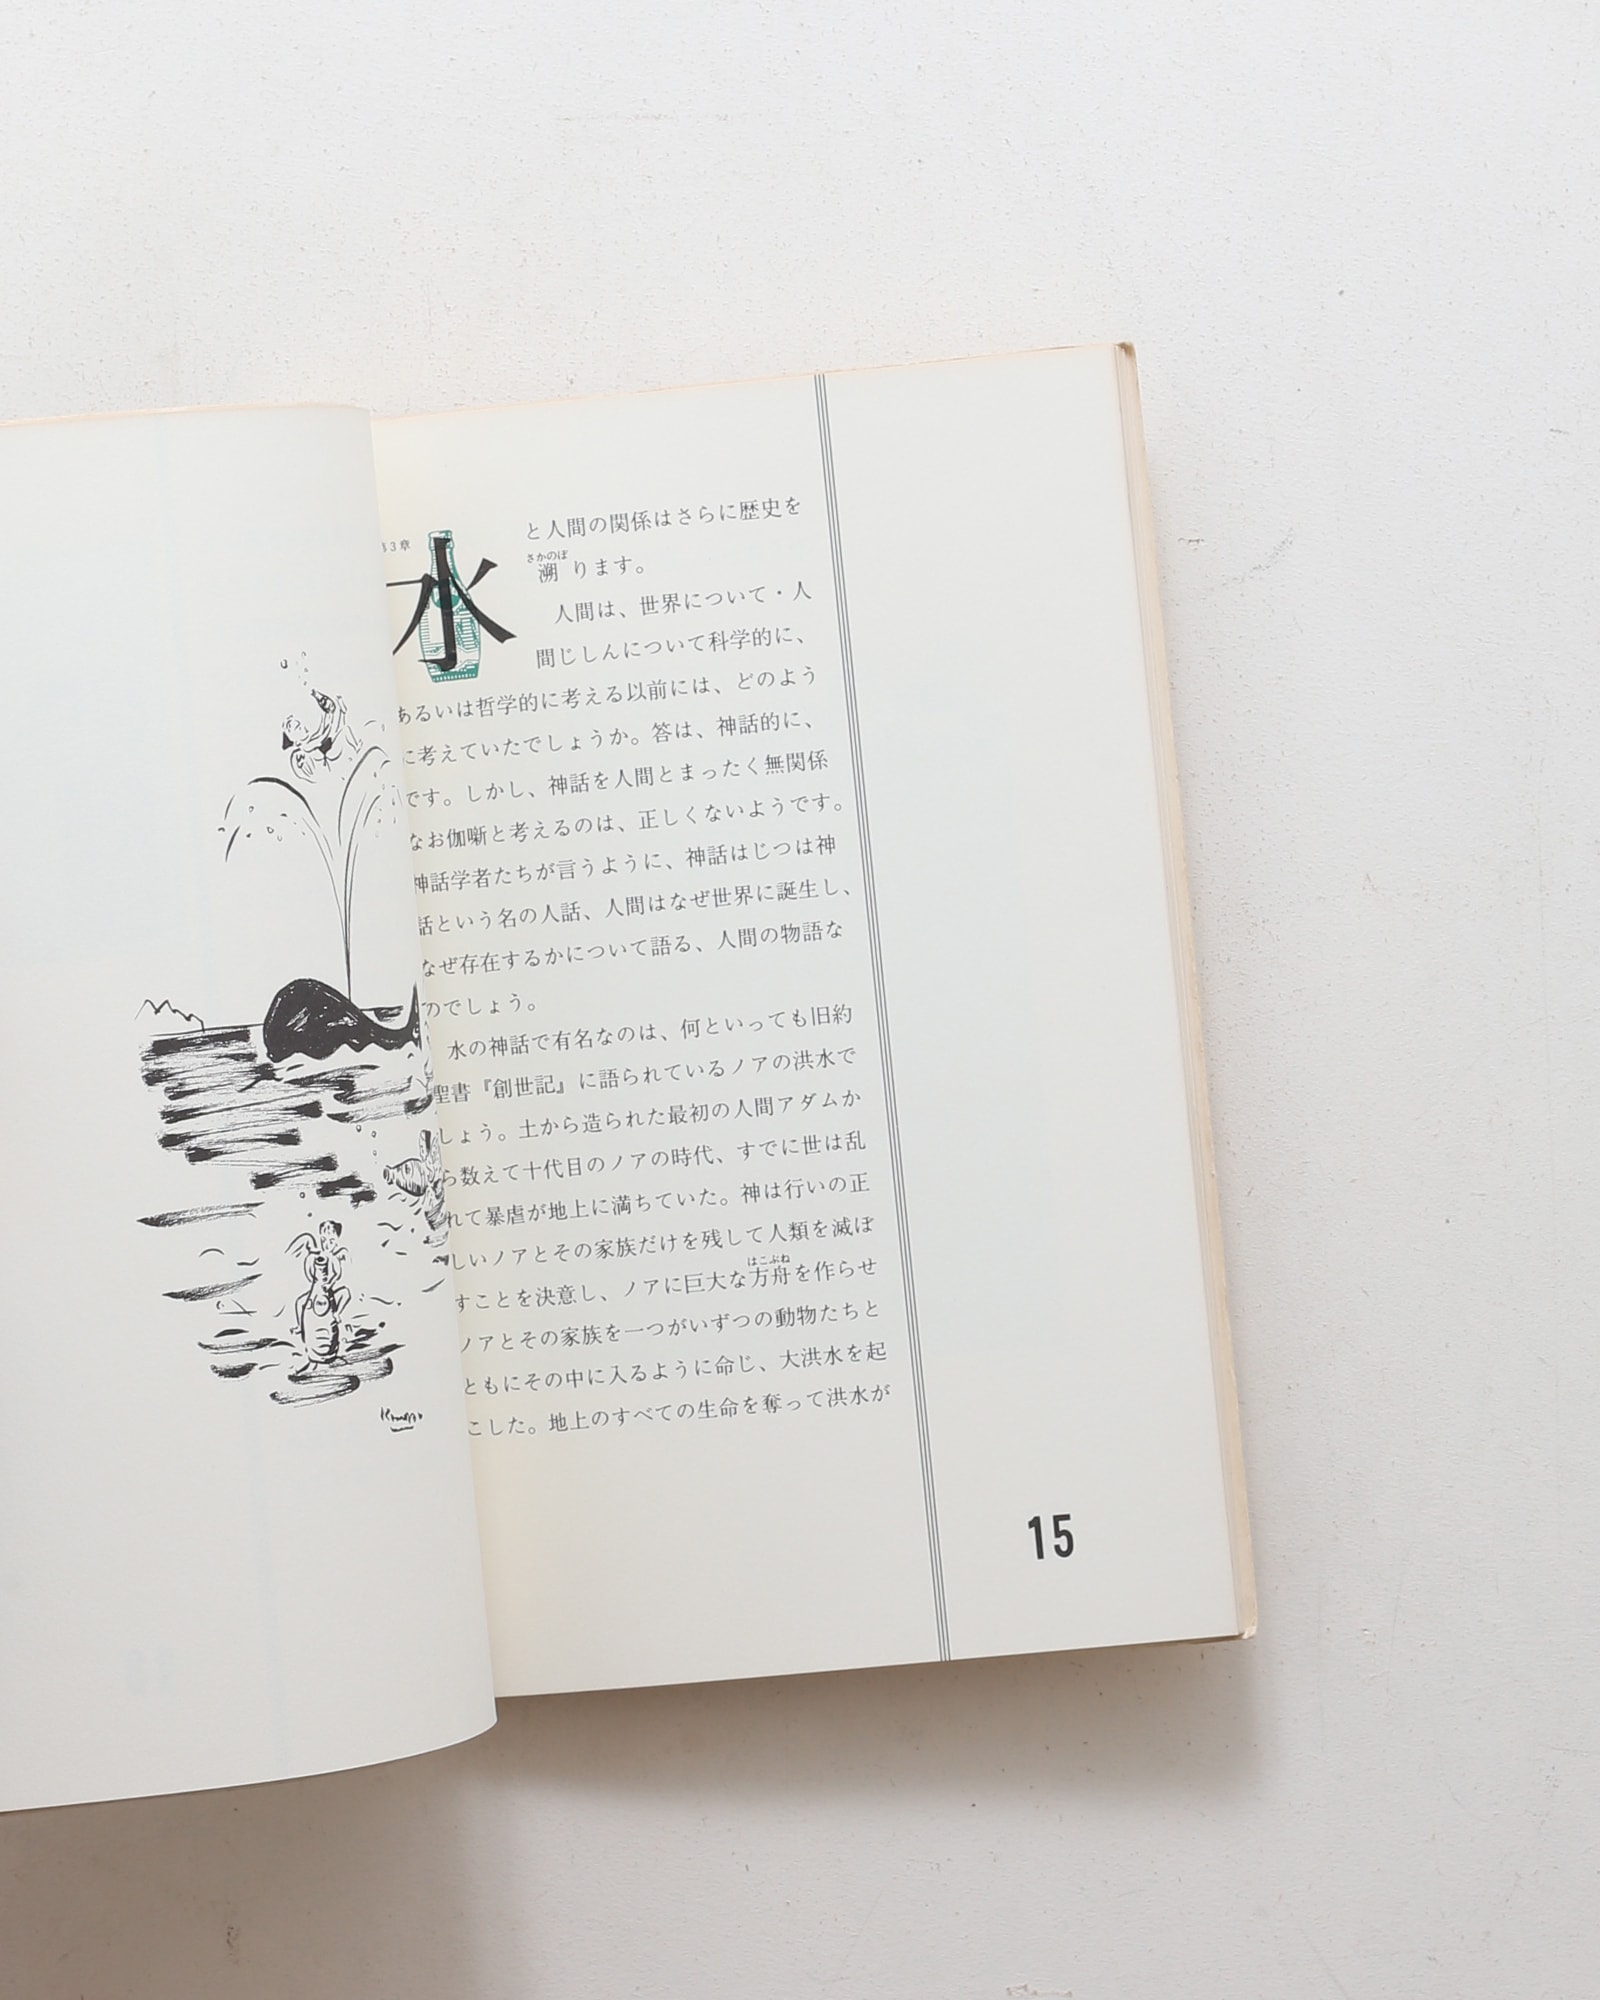 3章
水
と人間の関係はさらに歴史を
溯ります。
さかのぼ
人間は、世界について・人
間じしんについて科学的に、
あるいは哲学的に考える以前には、どのよう
に考えていたでしょうか。答は、神話的に、
です。しかし、神話を人間とまったく無関係
なお伽噺と考えるのは、正しくないようです。
神話学者たちが言うように、神話はじつは神
話という名の人話、人間はなぜ世界に誕生し、
なぜ存在するかについて語る、人間の物語な
のでしょう。
水の神話で有名なのは、何といっても旧約
聖書『創世記』に語られているノアの洪水で
しょう。土から造られた最初の人間アダムか
ら数えて十代目のノアの時代、すでに世は乱
れて暴虐が地上に満ちていた。神は行いの正
しいノアとその家族だけを残して人類を滅ぼ
すことを決意し、ノアに巨大な方舟を作らせ
はこぶね
ノアとその家族を一つがいずつの動物たちと
ともにその中に入るように命じ、大洪水を起
こした。地上のすべての生命を奪って洪水が
15